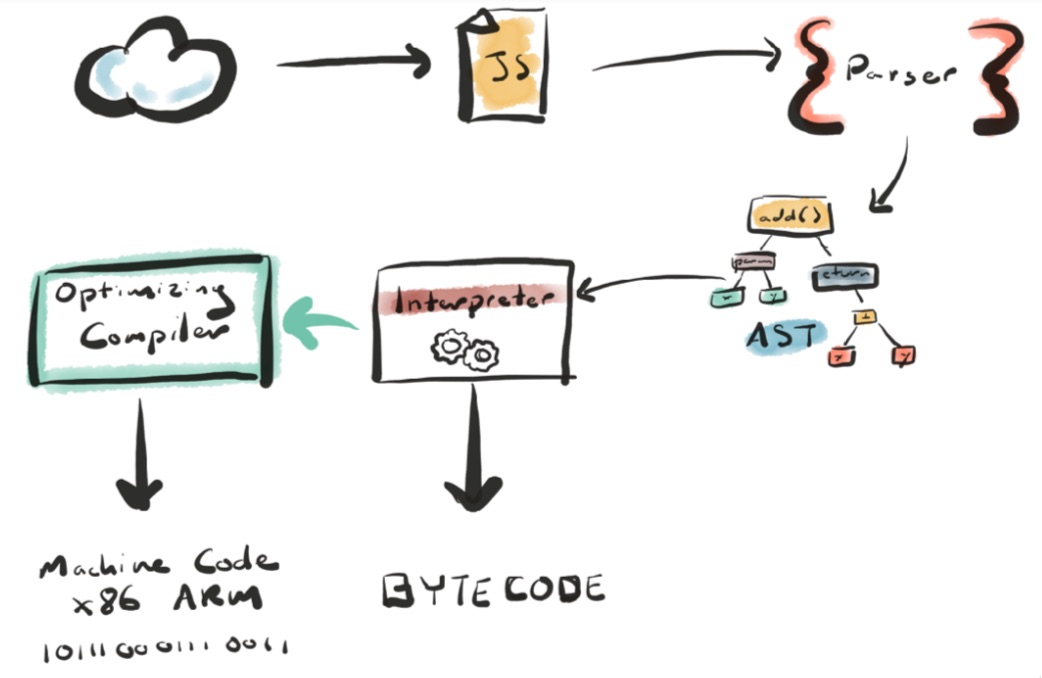 JS
Parser
add()
param
return
x
y
+
AST
x
y
Interpreter
Optimizing
Compiler
Machine Code
x86 ARM
BYTECODE